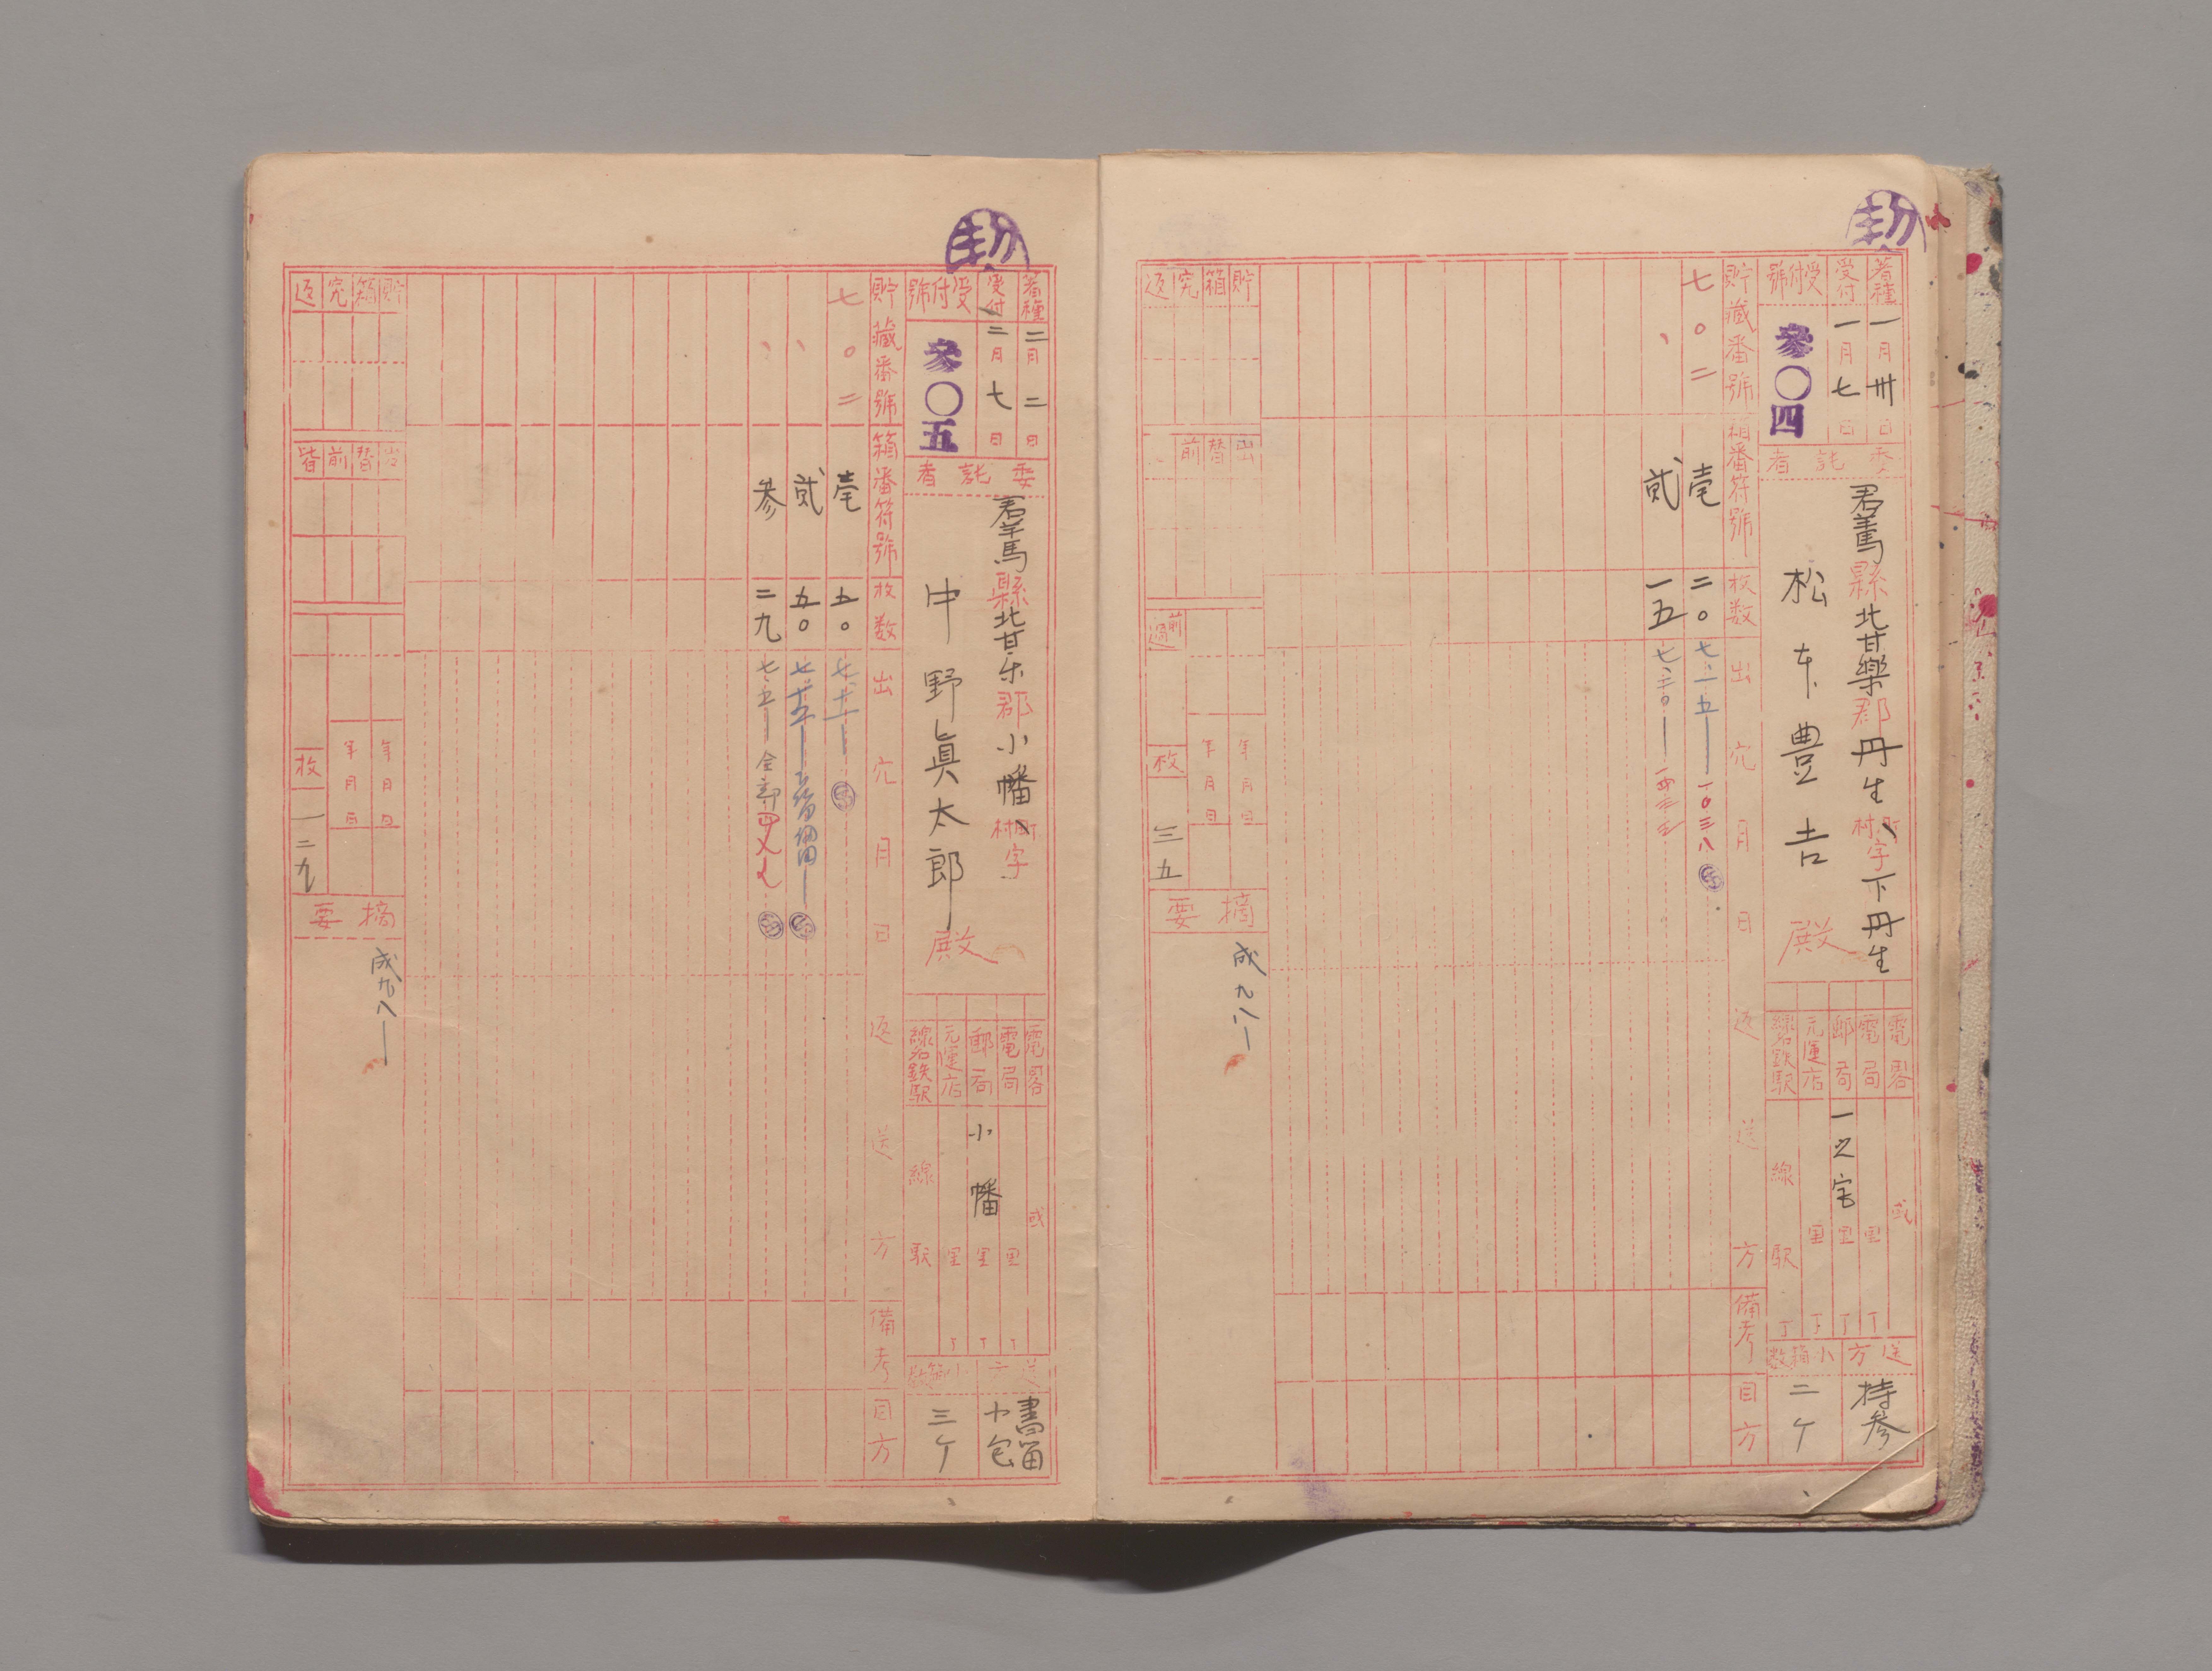 着種 一月卅日
受付 一月七日
受付號 參〇四
委託者
群馬縣北甘樂郡丹生町村字下丹生
松本豊吉殿
電畧
電局 里丁
郵局 一之宅 里丁
元運店 里丁
線名鉄駅 線 駅
送方 持参
小箱数 二ケ
貯藏番號 箱番符號 枚数 出穴月日 返送方 備考 目方
七〇二 壱 二〇 七、一五 一〇三八
、 貳 一五 七、二〇
貯箱究返
出替前
前過
年月日
年月日
枚 三五
摘要
成九八
着種 二月二日
受付 二月七日
受付號 參〇五
委託者
群馬縣北甘楽郡小幡町村字
中野眞太郎殿
電畧
電局 里丁
郵局 小幡 里丁
元運店 里丁
線名鉄駅 線 駅
書留小包
小箱数 三ケ
貯藏番號 箱番符號 枚数 出穴月日 返送方 備考 目方
七〇二 壱 五〇
、 貳 五〇
、 参 二九 七、五 全部
貯箱究返
出替前皆
年月日
年月日
枚 一二九
摘要
成九八